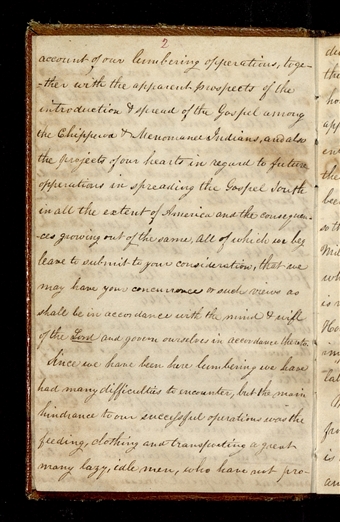 2
account of our lumbering opperations, toge-
-ther with the apparent prospects of the
introduction & spread of the Gospel among
the Chippwa & Menomanee Indians, and also
the projects of our hearts in regard to future
opperations in spreading the Gospel South
in all the extent of America and the consequen-
-ces growing out of the same, all of which we beg
leave to submit to your consideration, that we
may have your concurrence or such views as
shall be in accordance with the mind & will
of the Lord and govern ourselves in accordance thereto.
Since we have been here lumbering we have
had many difficulties to encounter, but the main
hindrance to our successful operations was the
feeding, clothing and transporting a great
many lazy, idle men, who have not pro-